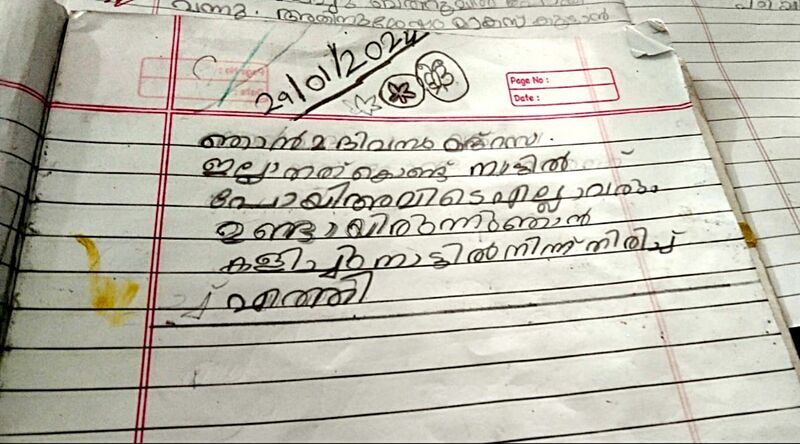 വന്നു. അതിനുശേഷം മാങ്ങ കൂടാൻ
29/01/2024
Page No :
Date :
ഞാൻ 2 ദിവസം മദ്റസ.
ഇല്ലാതത് കൊണ്ട് നാട്ടിൽ
പോയി അവിടെ എല്ലാവരും
ഉണ്ടായിരുന്നു ഞാൻ
കളിച്ചു നാട്ടിൽ നിന്ന് തിരിച്ച്
എത്തി